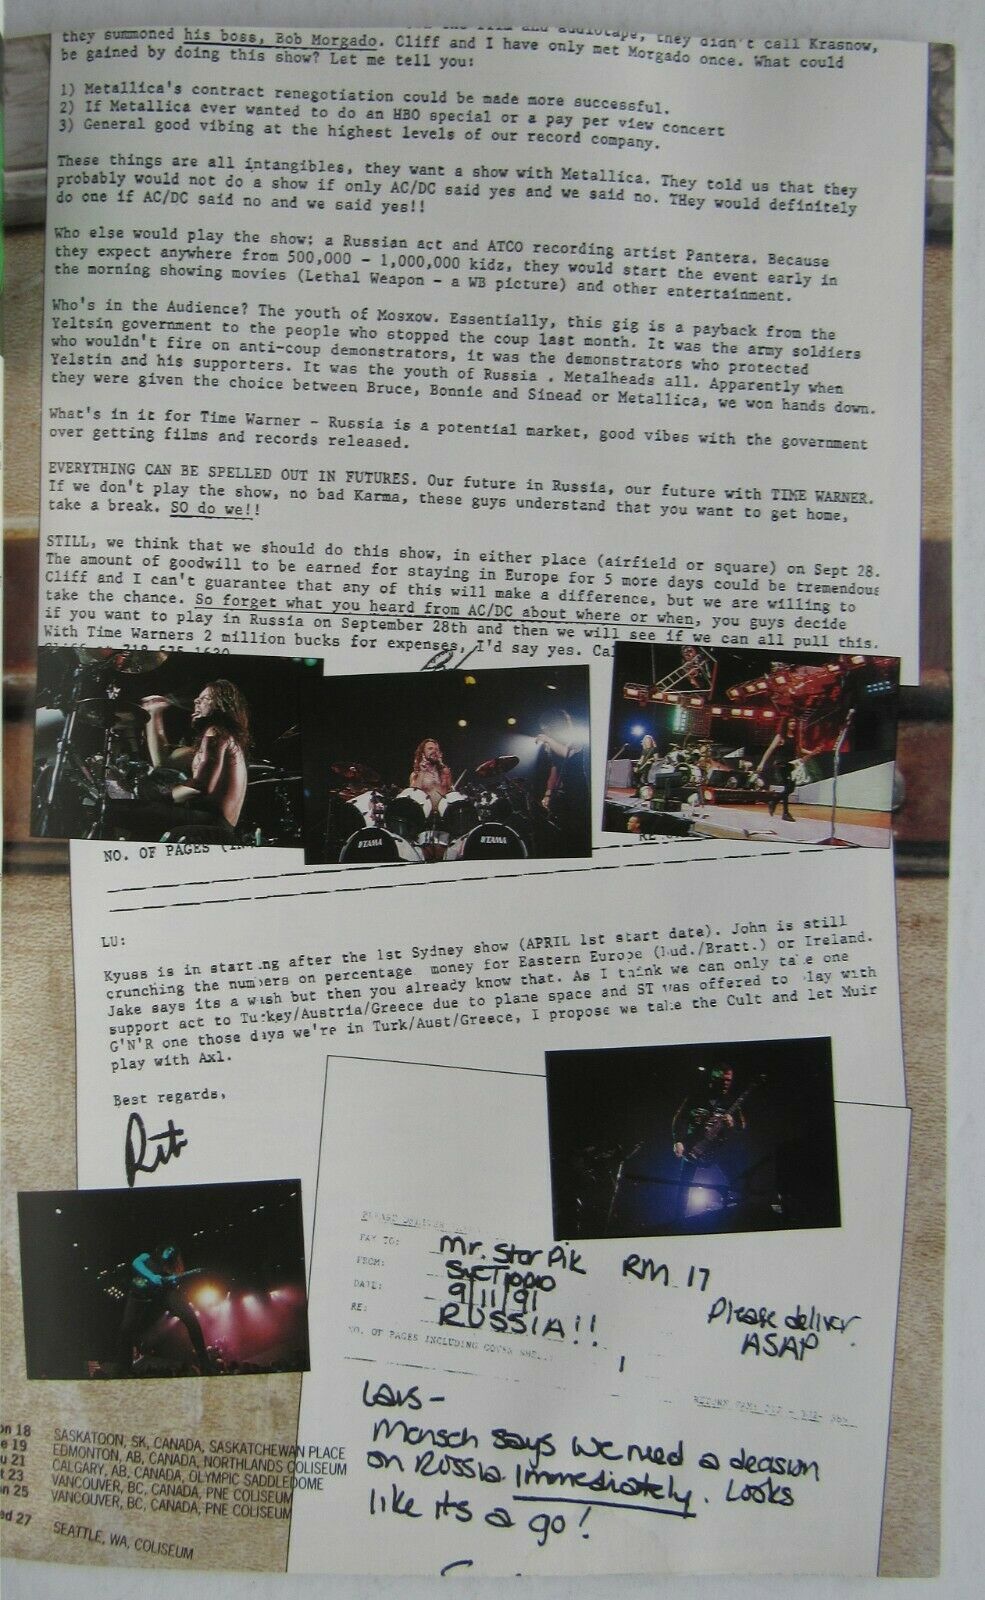 film and audiotape, they didn't call Krasnow,
they summoned his boss, Bob Morgado. Cliff and I have only met Morgado once. What could
be gained by doing this show? Let me tell you:
1) Metallica's contract renegotiation could be made more successful.
2) If Metallica ever wanted to do an HBO special or a pay per view concert
3) General good vibing at the highest levels of our record company.
These things are all intangibles, they want a show with Metallica. They told us that they
probably would not do a show if only AC/DC said yes and we said no. THey would definitely
do one if AC/DC said no and we said yes!!
Who else would play the show; a Russian act and ATCO recording artist Pantera. Because
they expect anywhere from 500,000 - 1,000,000 kidz, they would start the event early in
the morning showing movies (Lethal Weapon - a WB picture) and other entertainment.
Who's in the Audience? The youth of Mosxow. Essentially, this gig is a payback from the
Yeltsin government to the people who stopped the coup last month. It was the army soldiers
who wouldn't fire on anti-coup demonstrators, it was the demonstrators who protected
Yelstin and his supporters. It was the youth of Russia . Metalheads all. Apparently when
they were given the choice between Bruce, Bonnie and Sinead or Metallica, we won hands down.
What's in it for Time Warner - Russia is a potential market, good vibes with the government
over getting films and records released.
EVERYTHING CAN BE SPELLED OUT IN FUTURES. Our future in Russia, our future with TIME WARNER.
If we don't play the show, no bad Karma, these guys understand that you want to get home,
take a break. SO do we!!
STILL, we think that we should do this show, in either place (airfield or square) on Sept 28.
The amount of goodwill to be earned for staying in Europe for 5 more days could be tremendous
Cliff and I can't guarantee that any of this will make a difference, but we are willing to
take the chance. So forget what you heard from AC/DC about where or when, you guys decide
if you want to play in Russia on September 28th and then we will see if we can all pull this.
With Time Warners 2 million bucks for expenses, I'd say yes. Cal
TAMA
TAMA
NO. OF PAGES (IN
LU:
Kyuss is in starting after the 1st Sydney show (APRIL 1st start date). John is still
crunching the numbers on percentage money for Eastern Europe (Bud./Bratt.) or Ireland.
Jake says its a wish but then you already know that. As I think we can only take one
support act to Turkey/Austria/Greece due to plane space and ST was offered to play with
G'N'R one those days we're in Turk/Aust/Greece, I propose we take the Cult and let Muir
play with Axl.
Best regards,
PLEASE DELIVER
FAX TO: Mr. Star Pik RM 17
FROM:
DATE: 9/11/91 Please deliver
RE: RUSSIA!! ASAP
NO. OF PAGES INCLUDING COVER SHEET 1
Lars-
Mensch says we need a decision
on Russia immediately. Looks
like its a go!
on 18 SASKATOON, SK, CANADA, SASKATCHEWAN PLACE
e 19 EDMONTON, AB, CANADA, NORTHLANDS COLISEUM
u 21 CALGARY, AB, CANADA, OLYMPIC SADDLEDOME
t 23 VANCOUVER, BC, CANADA, PNE COLISEUM
on 25 VANCOUVER, BC, CANADA, PNE COLISEUM
ed 27 SEATTLE, WA, COLISEUM